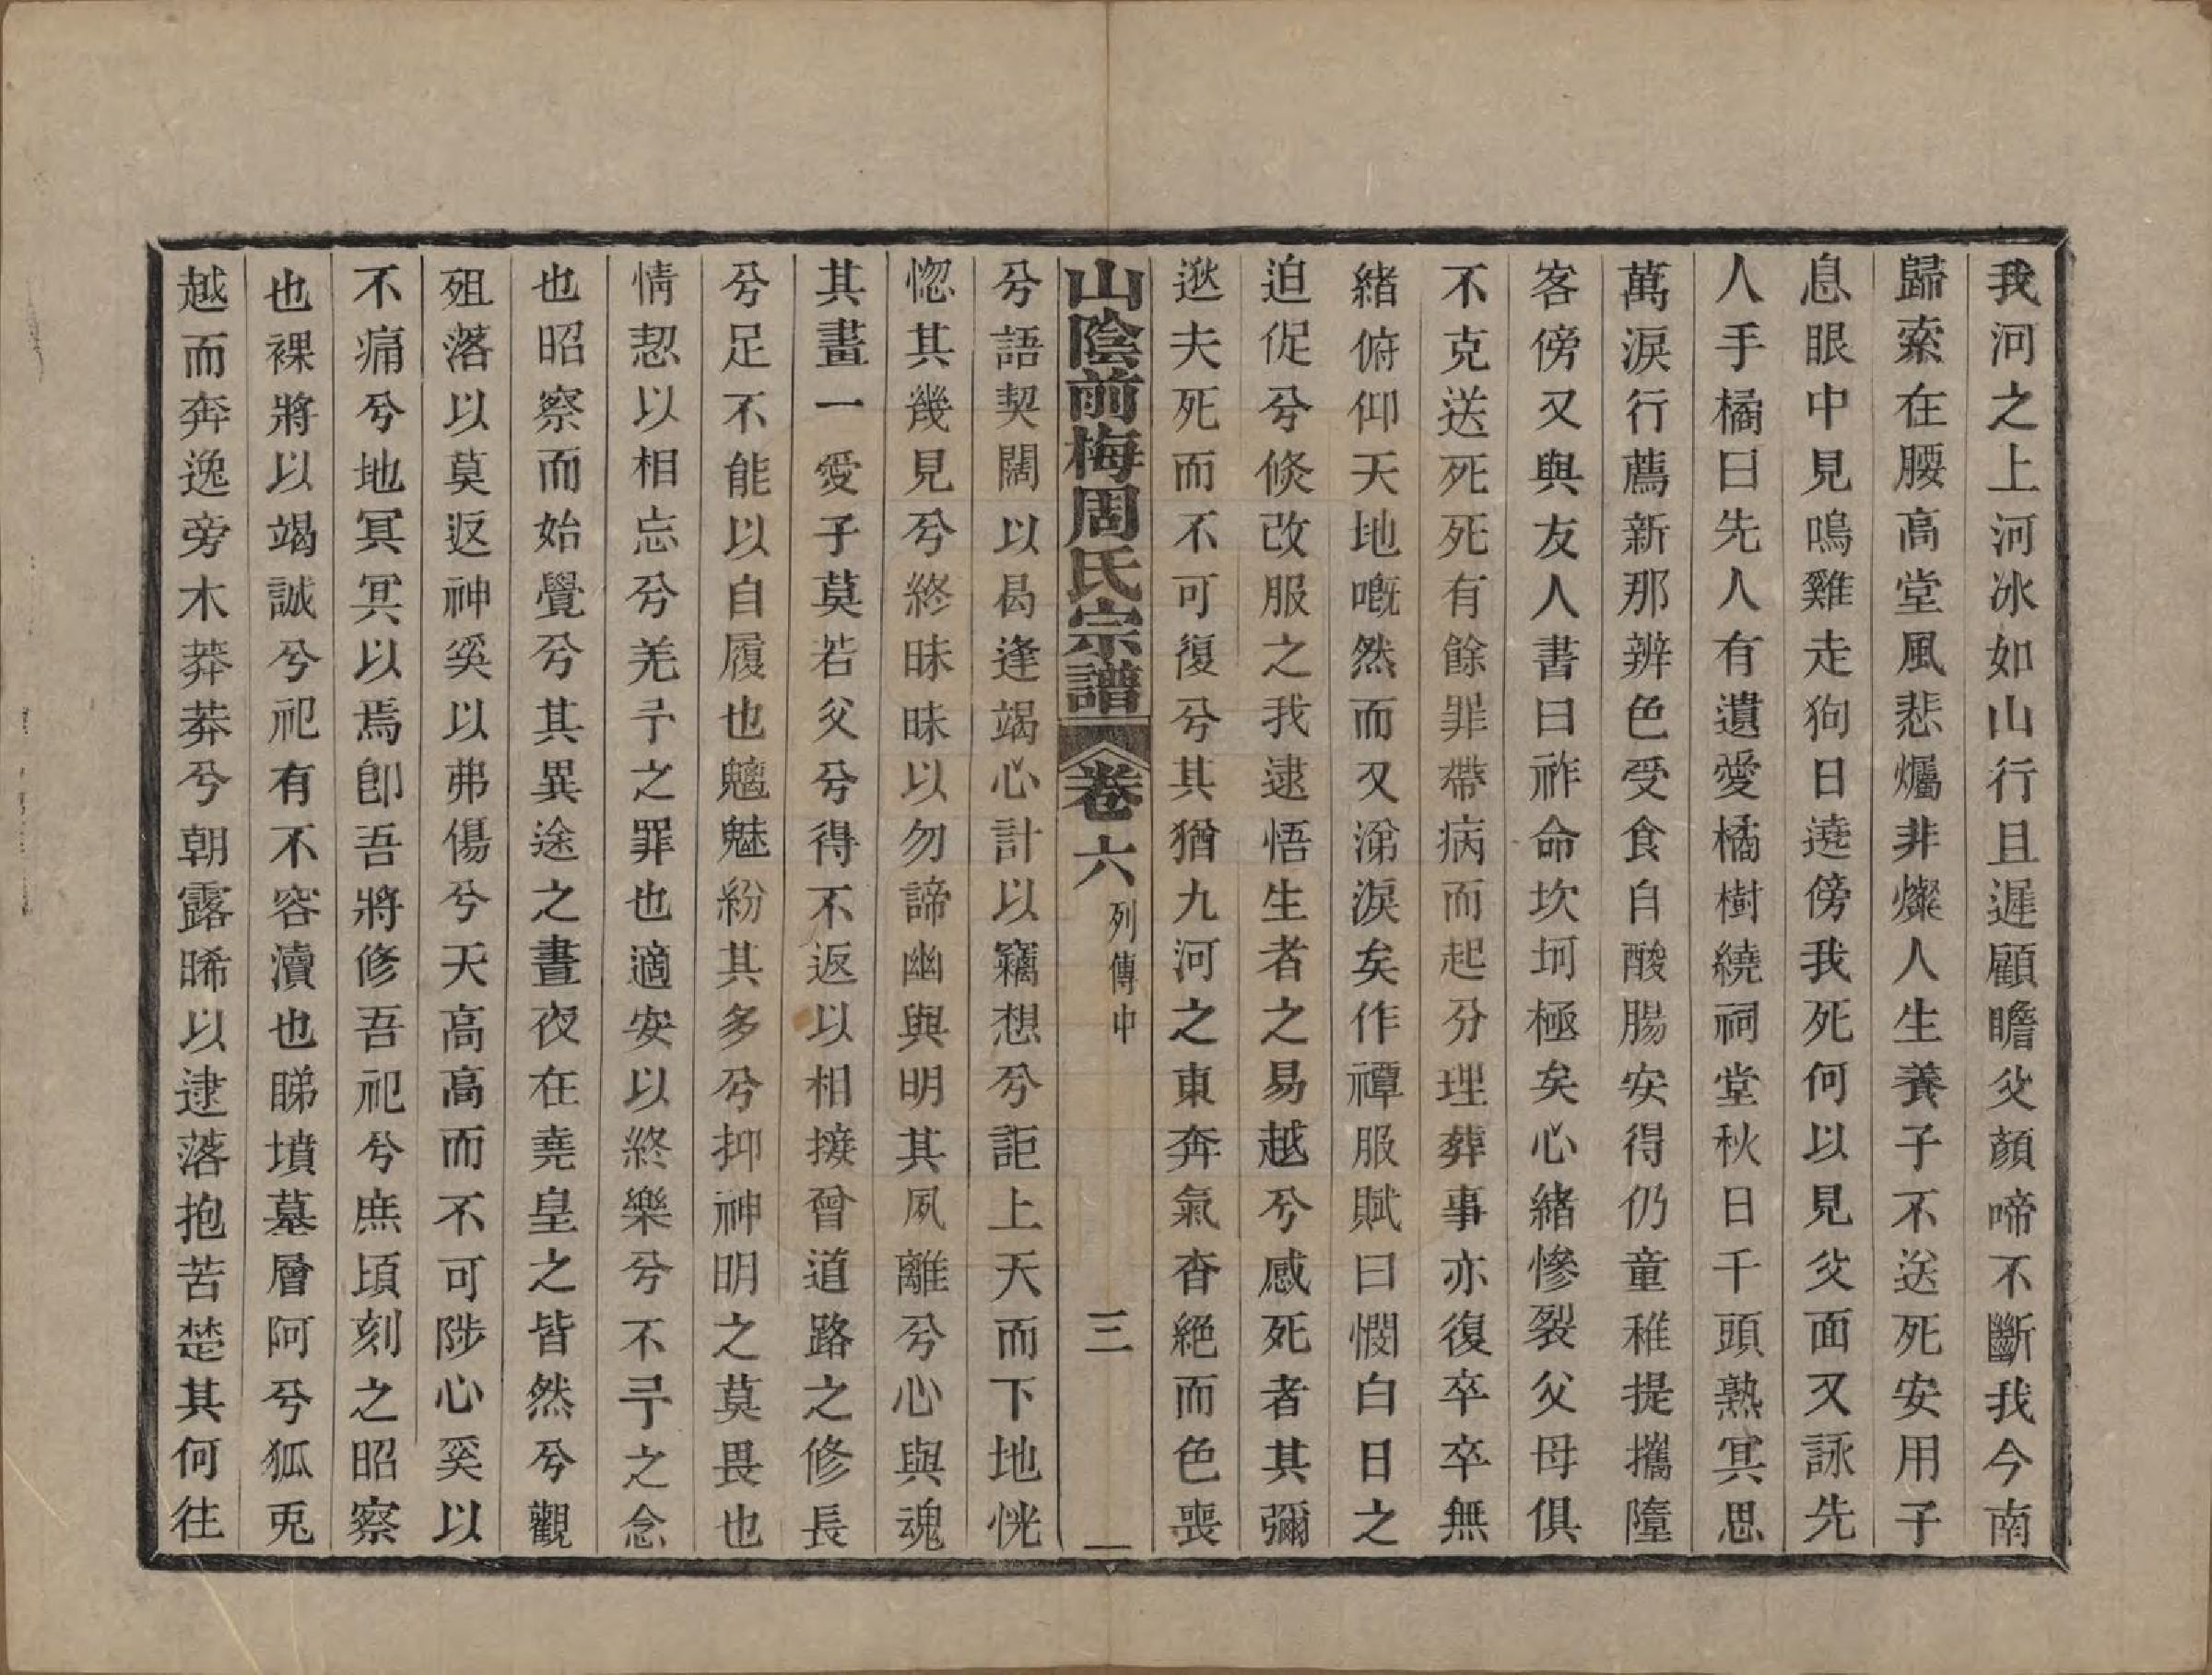 我河之上河冰如山行且遲顧瞻父顔啼不斷我今南
歸索在腰高堂風悲爥非燦人生養子不送死安用子
息眼中見鳴雞走狗日遶傍我死何以見父面又詠先
人手橘曰先人有遺愛橘樹繞祠堂秋日千頭熟冥思
萬淚行薦新那辨色受食自酸腸安得仍童稚提攜隨
客傍又與友人書曰祚命坎坷極矣心緒慘裂父母俱
不克送死死有餘罪帶病而起分理葬事亦復卒卒無
緒俯仰天地嘅然而又涕淚矣作禫服賦曰憫白日之
迫促兮倏改服之我逮悟生者之易越兮感死者其彌
逖夫死而不可復兮其猶九河之東奔氣杳絕而色喪
山陰前梅周氏宗譜 卷六 列傳中 三
兮語契闊以曷逢竭心計以竊想兮詎上天而下地恍
惚其幾見兮終昧昧以勿諦幽與明其夙離兮心與魂
其畫一愛子莫若父兮得不返以相援曾道路之修長
兮足不能以自履也魑魅紛其多兮抑神明之莫畏也
情恝以相忘兮羌予之罪也適安以終樂兮不予之念
也昭察而始覺兮其異途之晝夜在堯皇之皆然兮觀
殂落以莫返神奚以弗傷兮天高高而不可陟心奚以
不痛兮地冥冥以焉卽吾將修吾祀兮庶頃刻之昭察
也裸將以竭誠兮祀有不容瀆也睇墳墓層阿兮狐兎
越而奔逸旁木莽莽兮朝露晞以逮落抱苦楚其何往